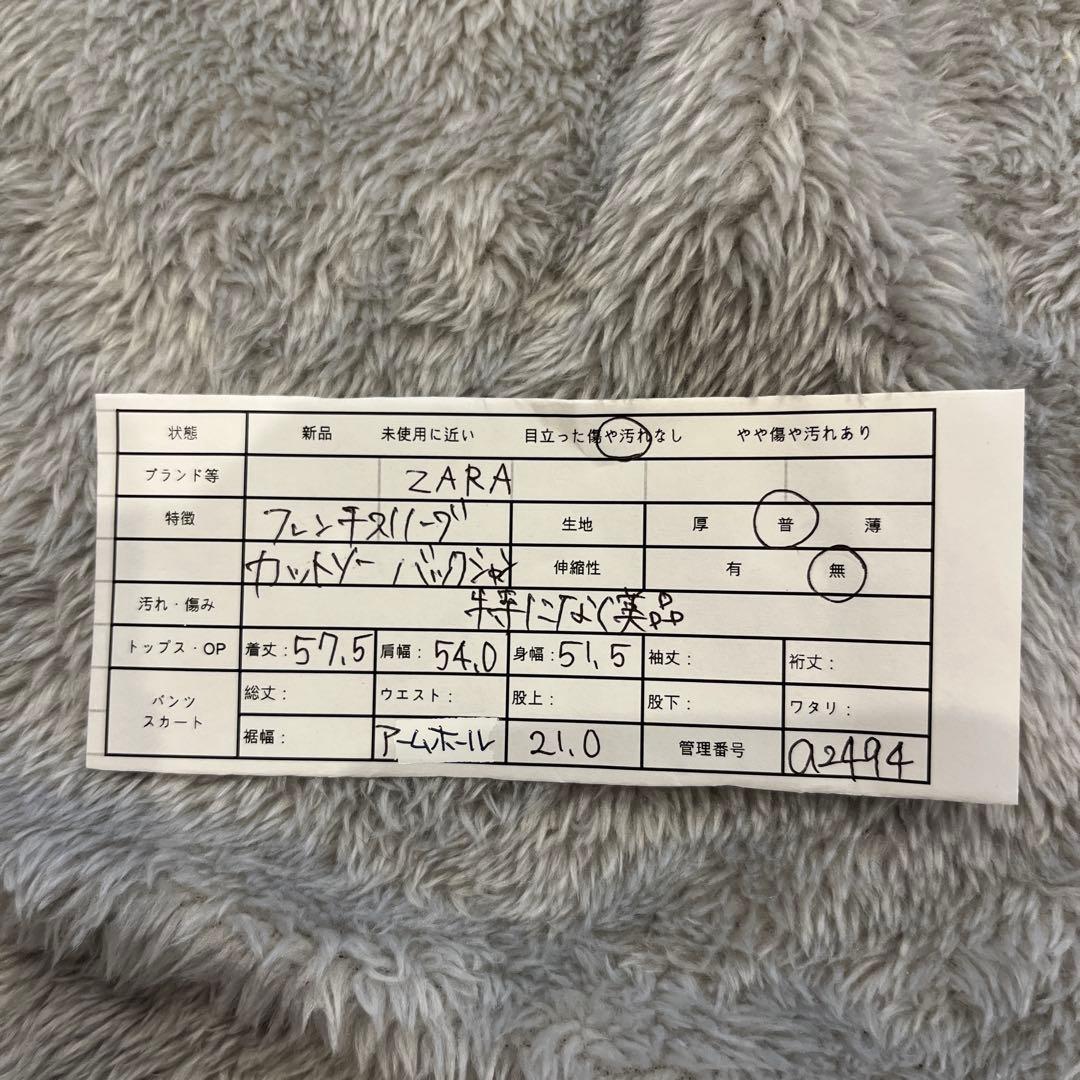 状態 新品 未使用に近い 目立った傷や汚れなし やや傷や汚れあり
ブランド等 ZARA
特徴 フレンチスリーブ 生地 厚 普 薄
カットソー バックシャン 伸縮性 有 無
汚れ・傷み 特になく美品
トップス・OP 着丈:57.5 肩幅:54.0 身幅:51.5 袖丈: 裄丈:
パンツ スカート 総丈: ウエスト: 股上: 股下: ワタリ:
裾幅: アームホール 21.0 管理番号 a2494